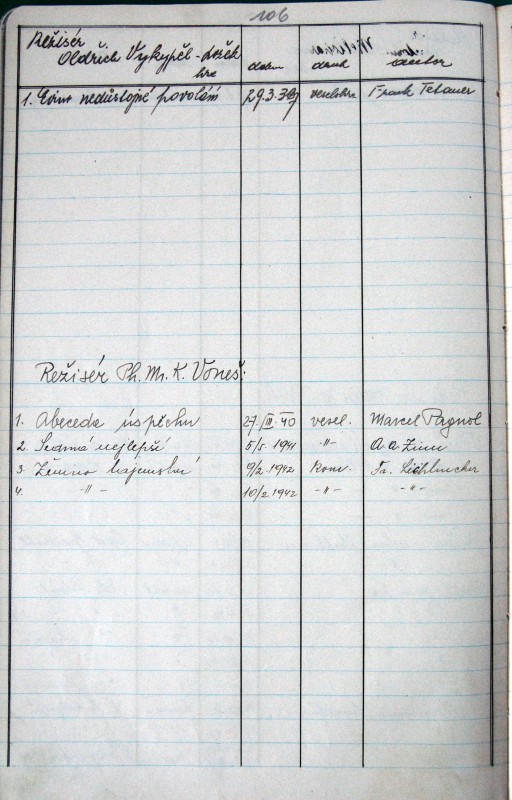 106
Režisér
Oldřich Vykypěl - Ležák
hra datum druh autor
1. nedůstojné povolání 29.3.39 veselohra Frank Tetauer
Režisér Ph. Mr. K. Voneš:
1. Abeceda úspěchu 27./III. 40 vesel. Marcel Pagnol
2. Sedmá nejlepší 5/5 1941 -"-
3. 9/2 1942 kom. Fr.
4. -"- 10/2 1942 -"- -"-